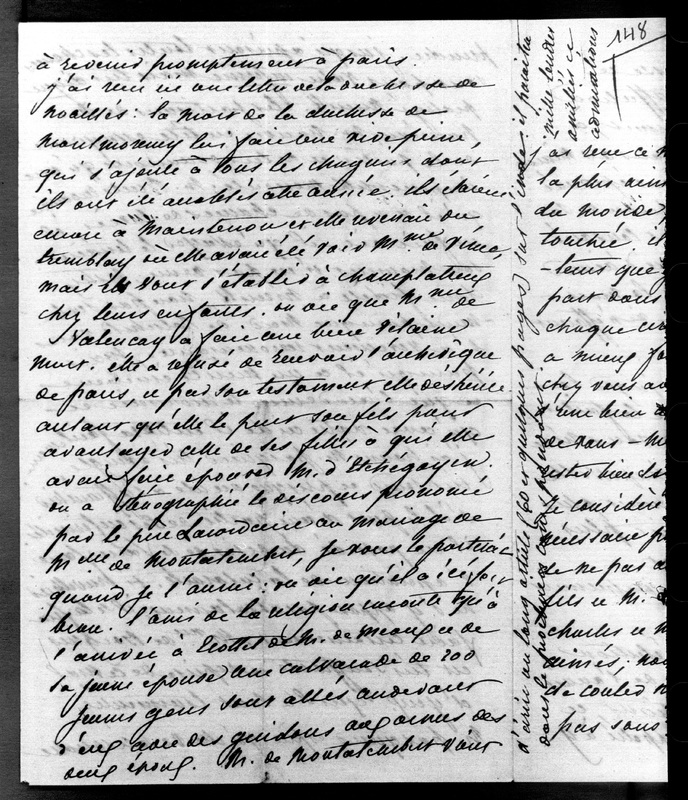 148
à revenir promptement à paris.
j'ai reçu ici une lettre de la duchesse de
noailles : la mort de la duchesse de
montmorency lui fait une vive peine,
qui s'ajoute à tous les chagrins dont
ils ont été accablés cette année. ils étaient
encore à Maintenon et elle revenait du
tremblay où elle avait été voir Mme de Vins,
mais ils vont s'établir à champlatreux
chez leurs enfants. on dit que Mme de
Valençay a fait une bien vilaine
mort. elle a refusé de recevoir l'archevêque
de paris, et par son testament elle déshérite
autant qu'elle le peut son fils pour
avantager celle de ses filles à qui elle
avait fait épouser M. d'Etchégoyen.
on a sténographié le discours prononcé
par le père Lacordaire au mariage de
Mlle de Montalembert, je vous le porterai
quand je l'aurai : on dit qu'il a été fort
beau. l'ami de la religion raconte qu'à
l'arrivée à de M. de Meaux et de
sa jeune épouse une cavalcade de 200
jeunes gens sont allés au devant
d'eux avec des guidons aux armes des
deux époux. M. de Montalembert vient
d'écrire un long article (60 et quelques pages) sur l'inde : il paraitra
dans le prochain correspondant.
mille tendres
amitiés et
admirations
ai reçu ce
la plus aim
du monde
touchée. il
-leurs que
part dans
chaque
a mieux
chez vous
d'une bien
de vous
bien
Je considère
nécessaire
de ne pas
fils et M.
charles et
aimés,
de couler
pas sans